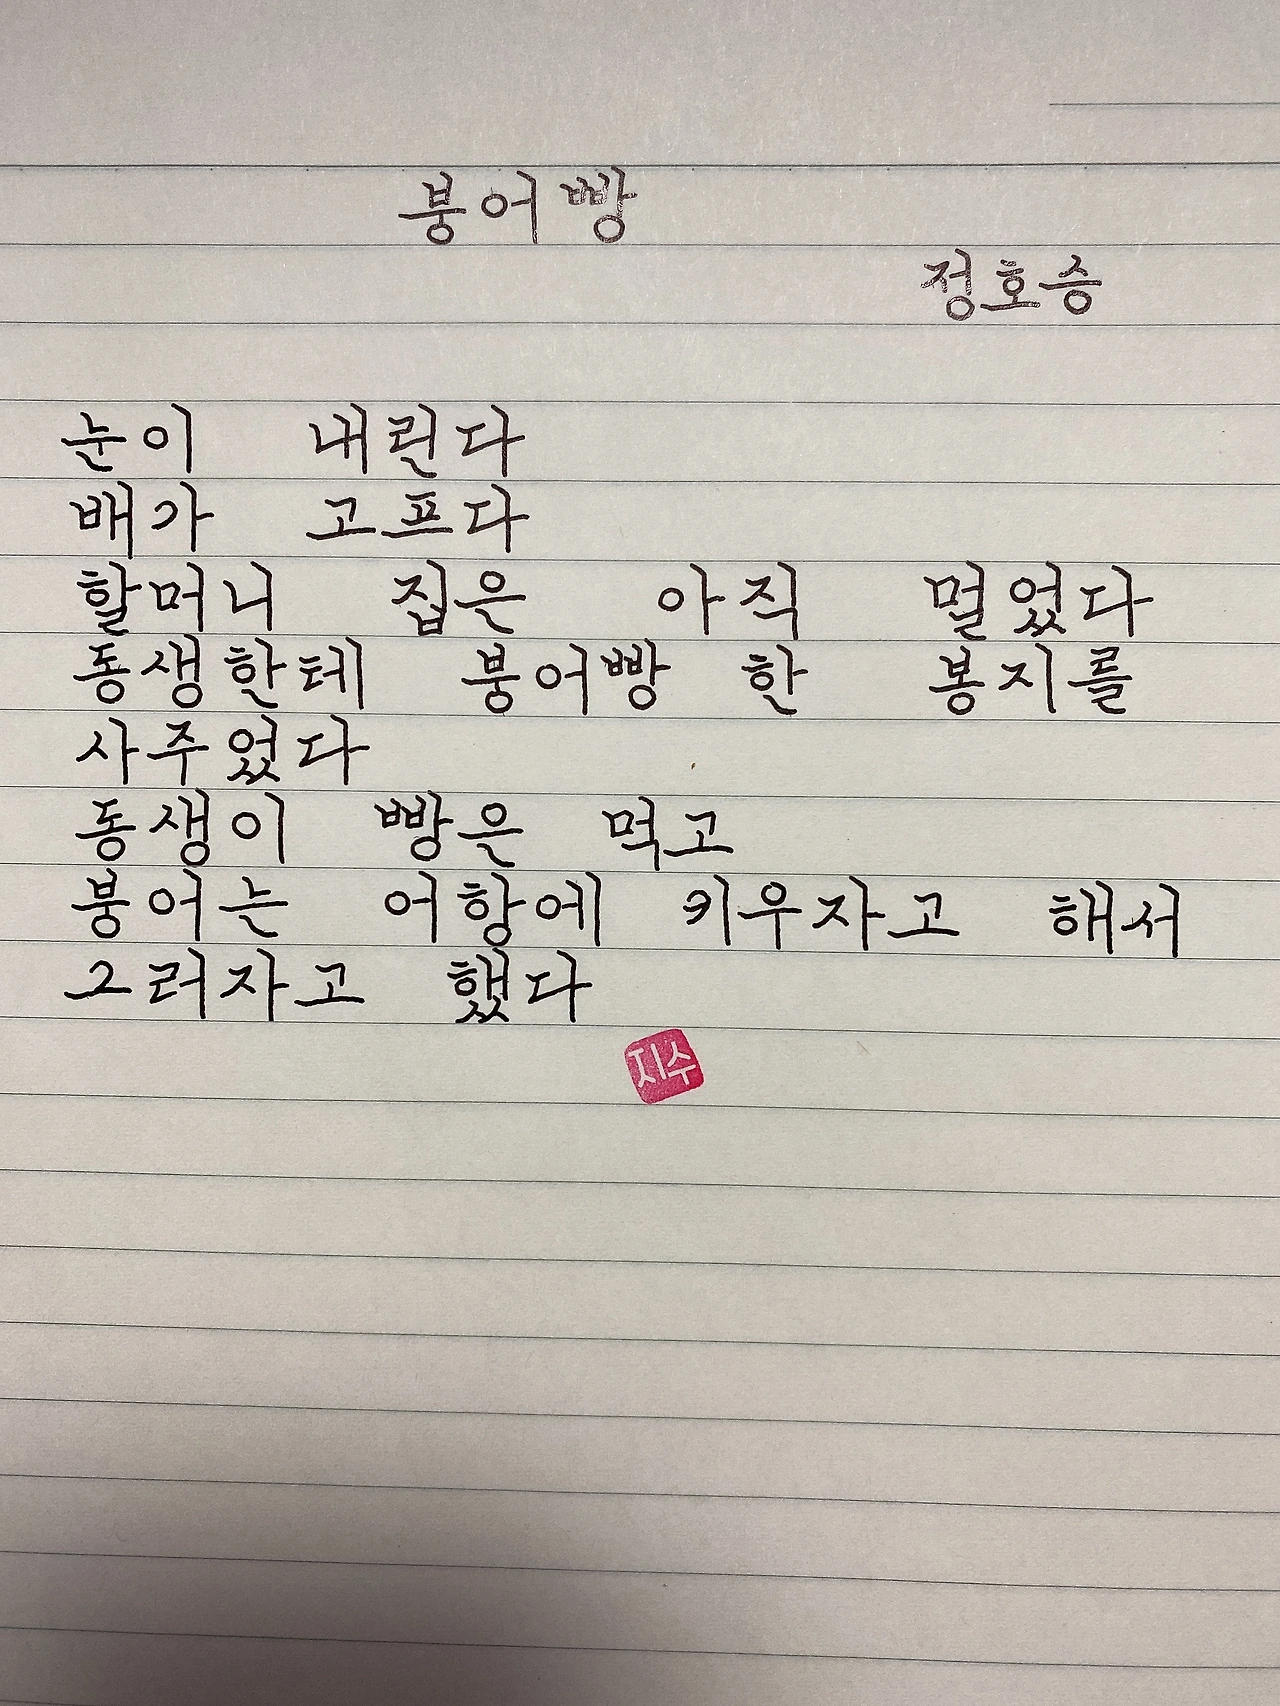 붕어빵
정호승
눈이 내린다
배가 고프다
할머니 집은 아직 멀었다
동생한테 붕어빵 한 봉지를
사주었다
동생이 빵은 먹고
붕어는 어항에 키우자고 해서
그러자고 했다
지수